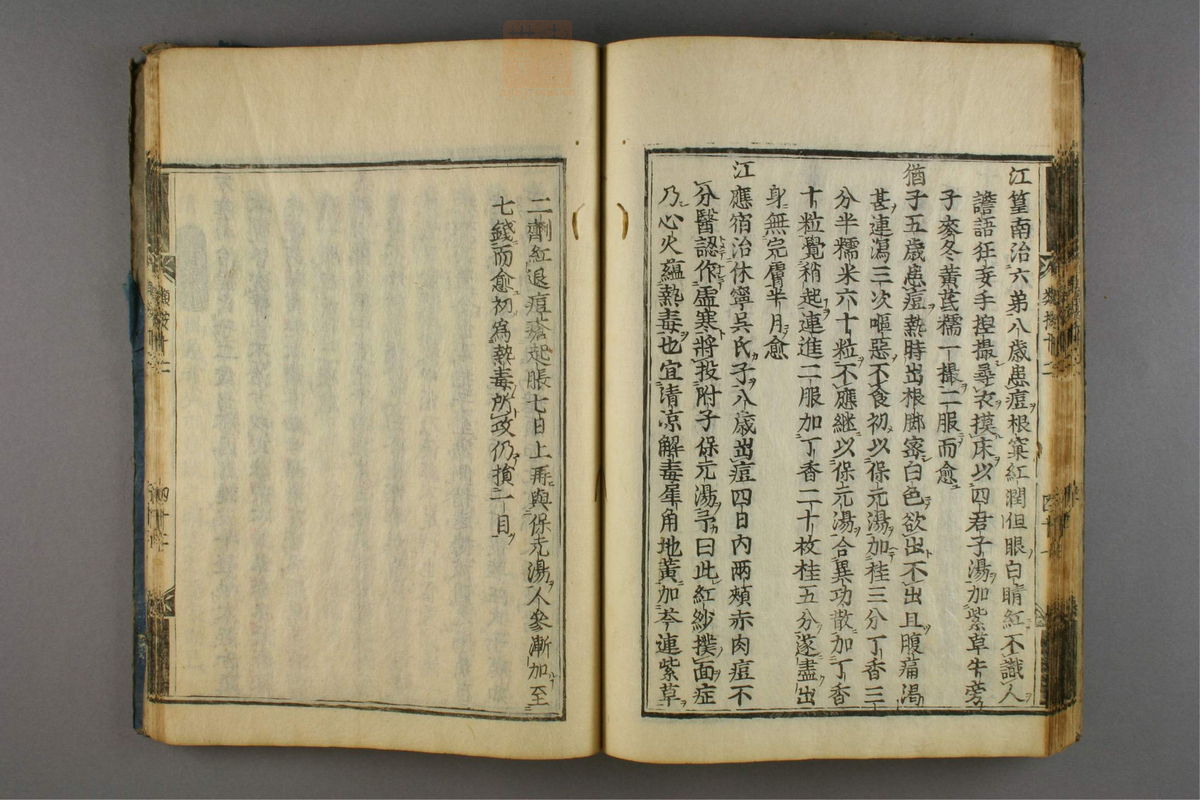 江篁南治六弟八歲患痘根窠紅潤但眼白睛紅不識人
譫語狂妄手捏撮尋衣摸床以四君子湯加紫草牛蒡
子麥冬黃芪糯一撮二服而愈
猶子五歲患痘熱時出根脚密白色欲出不出且腹痛渴
甚連瀉三次嘔惡不食初以保元湯加桂三分丁香三
分半糯米六十粒不應継以保元湯合異功散加丁香
十粒覺稍起連進二服加丁香二十枚桂五分遂盡出
身無完膚半月愈
江應宿治休寧吳氏子八歲出痘四日內兩頰赤肉痘不
分醫認作虛寒將投附子保元湯予曰此紅紗撲面症
乃心火蘊熱毒也宜清凉解毒犀角地黃加芩連紫草
二劑紅退痘瘡起脹七日上再與保元湯人參漸加至
七錢而愈初為熱毒所攻仍損一目